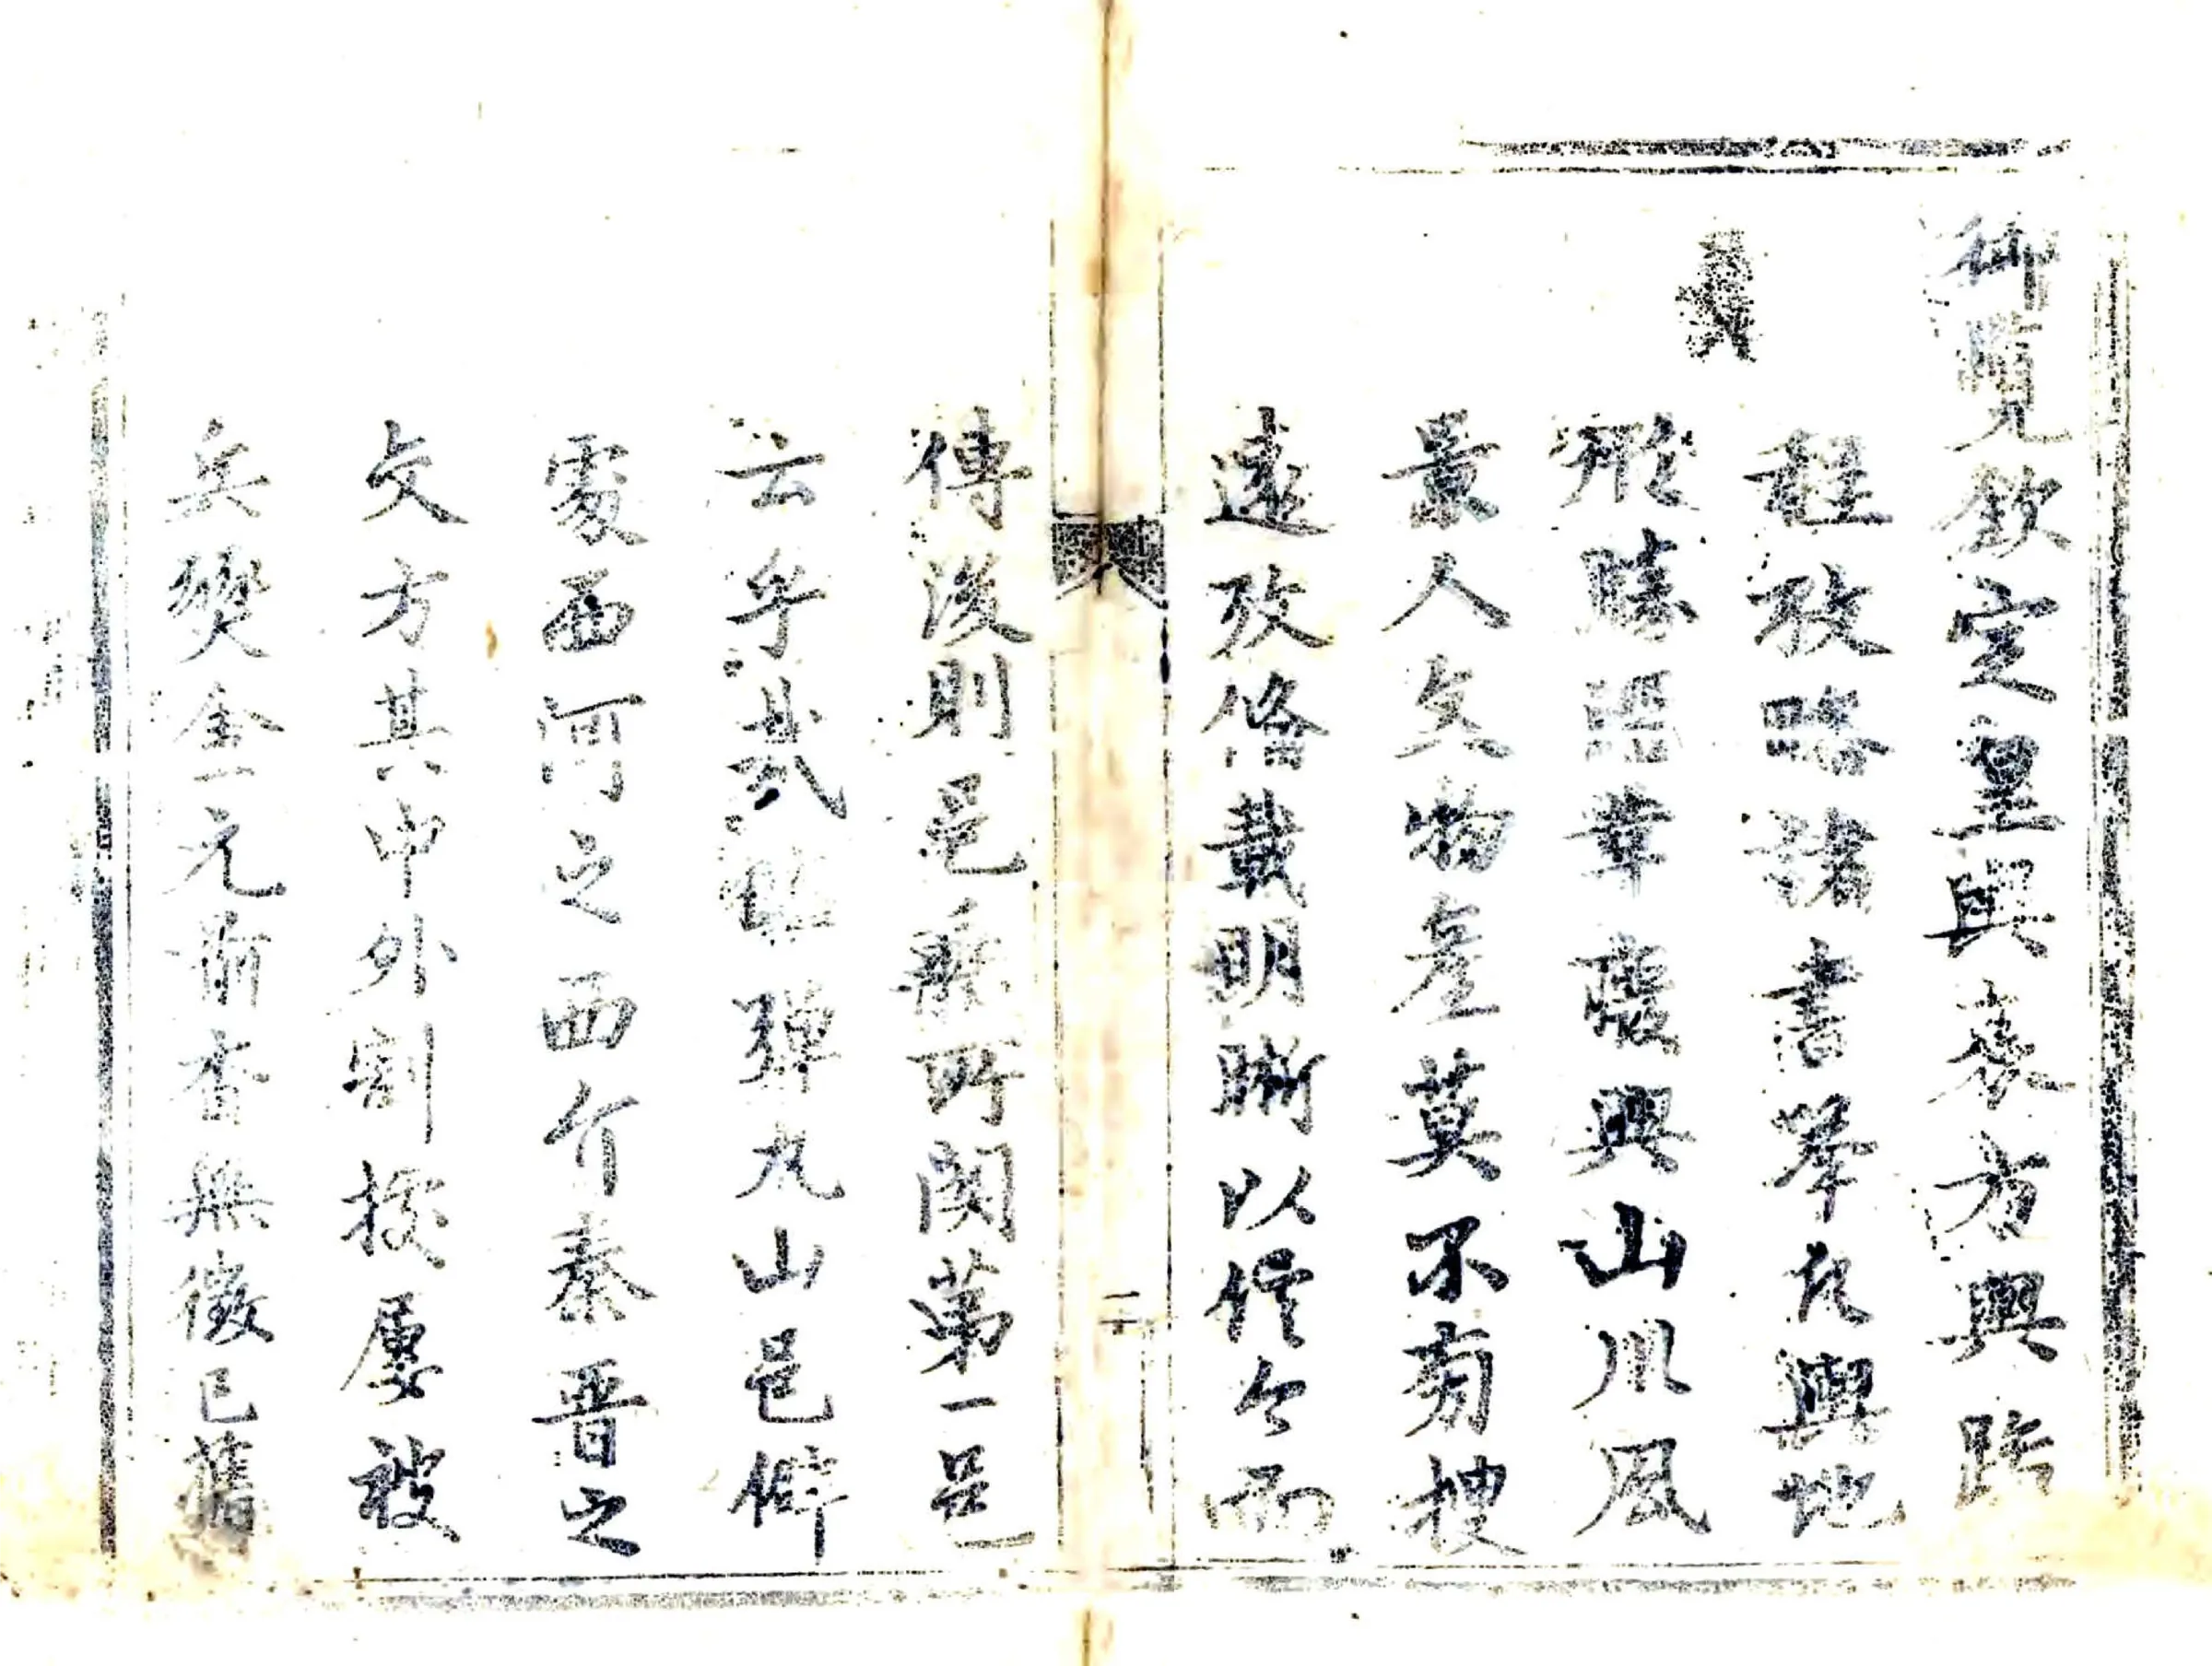 御覽欽定皇輿表方輿路
程攷略諸書舉凡輿地
形勝譜章襲興山川風
景人文物產莫不蒐搜
遠攷俻載明晰以傳今而
傳後則邑乘所関苐一邑
云乎哉 彈丸山邑僻
處西河之西介秦晋之
交方其中外割據屢被
兵燹金元前杳無徵已舊
二